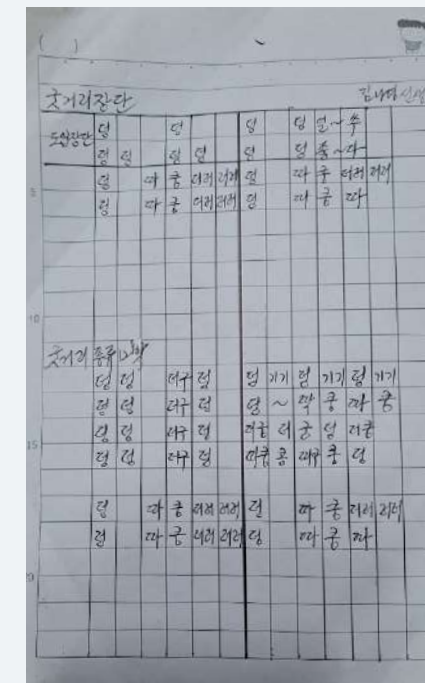 ( )
굿거리장단 김나라선생
도입장단 덩 덩 덩 덩 얼~쑤
덩 덩 덩 덩 덩 덩 좋~다
덩 따 쿵 더러러러 덩 따 쿵 더러러러
덩 따 쿵 더러러러 덩 따 쿵 따
굿거리 종류
덩 덩 더구 덩 덩 기기 덩 기기 덩 기기
덩 덩 더구 덩 덩 ~ 딱 쿵 따 쿵
덩 덩 더구 덩 더쿵 더 쿵 덩 더쿵
덩 덩 더구 덩 따쿵 쿵 따구 쿵 덩
덩 따 쿵 더러러러 덩 따 쿵 더러러러
덩 따 쿵 더러러러 덩 따 쿵 따